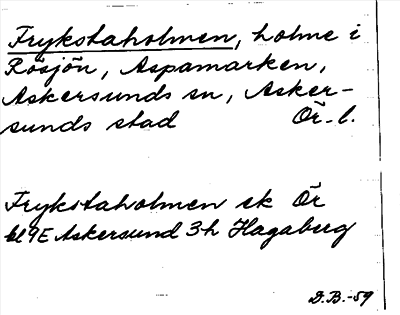 Frykstaholmen, holme i
Rösjön, Aspamarken,
Askersunds sn, Asker-
sunds stad Ör. l.
Frykstaholmen ek Ör
bl 9E Askersund 3h Hagaberg
D.B.-59